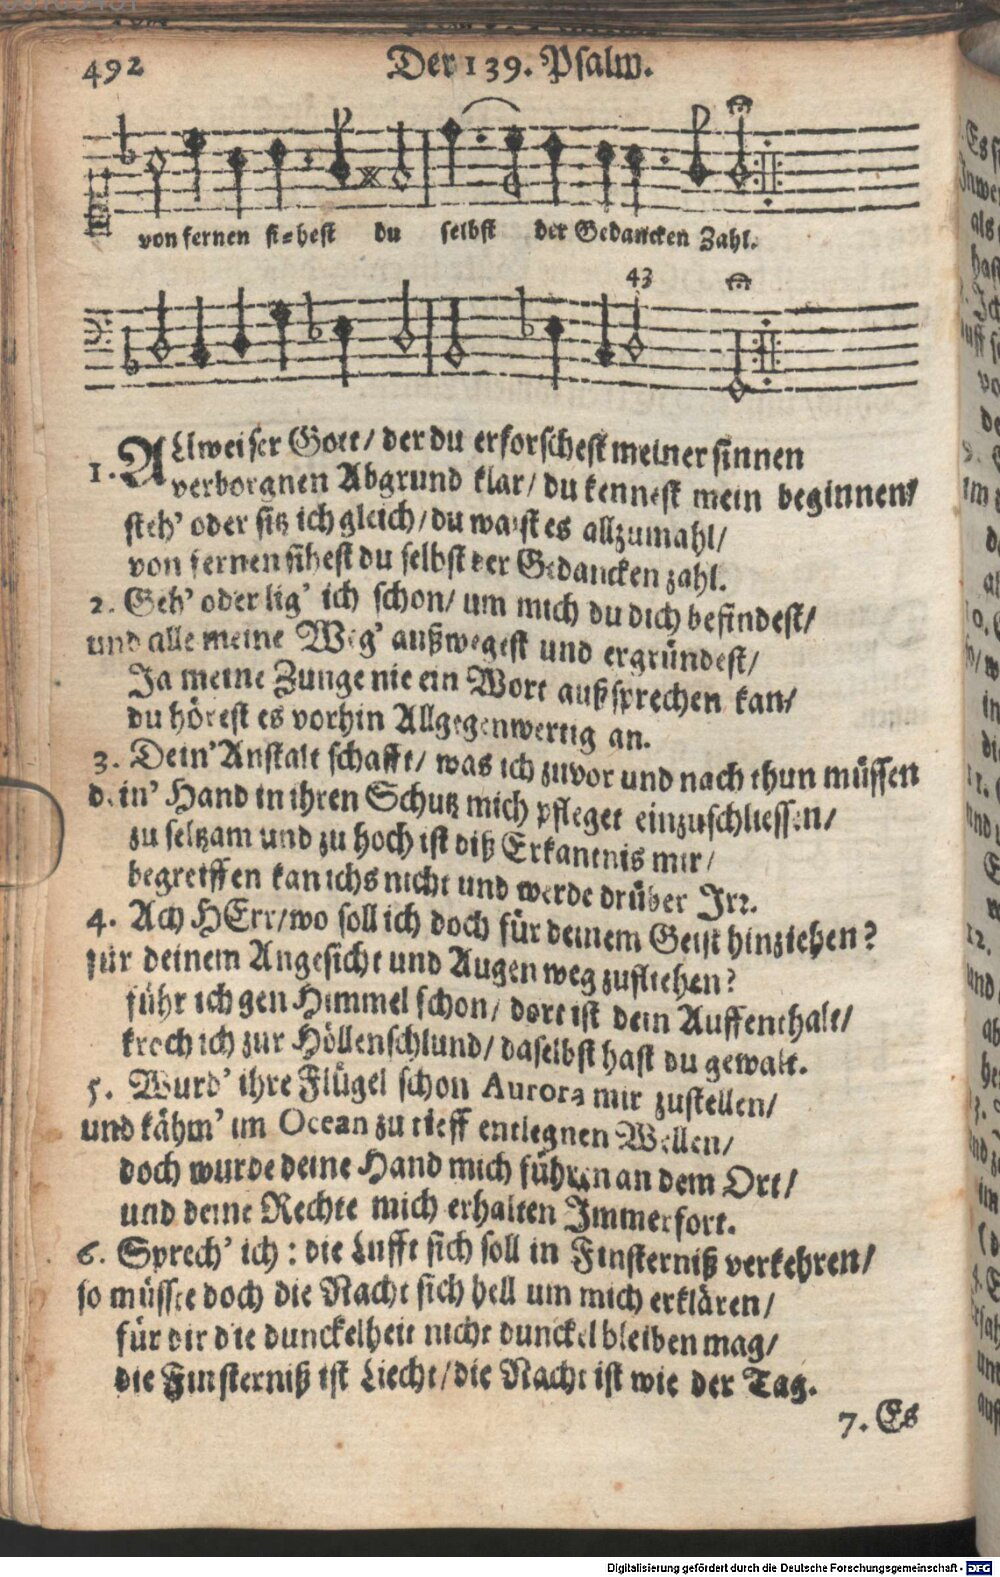 492
Der 139. Psalm.
von fernen si=hest du selbst der Gedancken Zahl.
43
1. ALlweiser Gott/ der du erforschest meiner sinnen
verborgnen Abgrund klar/ du kennest mein beginnen/
steh' oder sitz ich gleich/ du waist es allzumahl/
von fernen sihest du selbst der Gedancken zahl.
2. Geh' oder lig' ich schon/ um mich du dich befindest/
und alle meine Weg' außwegest und ergründest/
Ja meine Zunge nie ein Wort außsprechen kan/
du hörest es vorhin Allgegenwertig an.
3. Dein' Anstalt schafft/ was ich zuvor und nach thun müssen
dein' Hand in ihren Schutz mich pfleget einzuschliessen/
zu seltzam und zu hoch ist diß Erkantnis mir/
begreiffen kan ichs nicht und werde drüber Irr.
4. Ach HErr/ wo soll ich doch für deinem Geist hinziehen?
für deinem Angesicht und Augen weg zufliehen?
führ ich gen Himmel schon/ dort ist dein Auffenthalt/
kroch ich zur Höllenschlund/ daselbst hast du gewalt.
5. Wurd' ihre Flügel schon Aurora mir zustellen/
und kähm' im Ocean zu tieff entlegnen Wellen/
doch wurde deine Hand mich führen an dem Ort/
und deine Rechte mich erhalten Immerfort.
6. Sprech' ich: die Lufft sich soll in Finsterniß verkehren/
so müsste doch die Nacht sich hell um mich erklären/
für dir die dunckelheit nicht dunckel bleiben mag/
die Finsterniß ist Liecht/ die Nacht ist wie der Tag.
7. Es
Digitalisierung gefördert durch die Deutsche Forschungsgemeinschaft - DFG